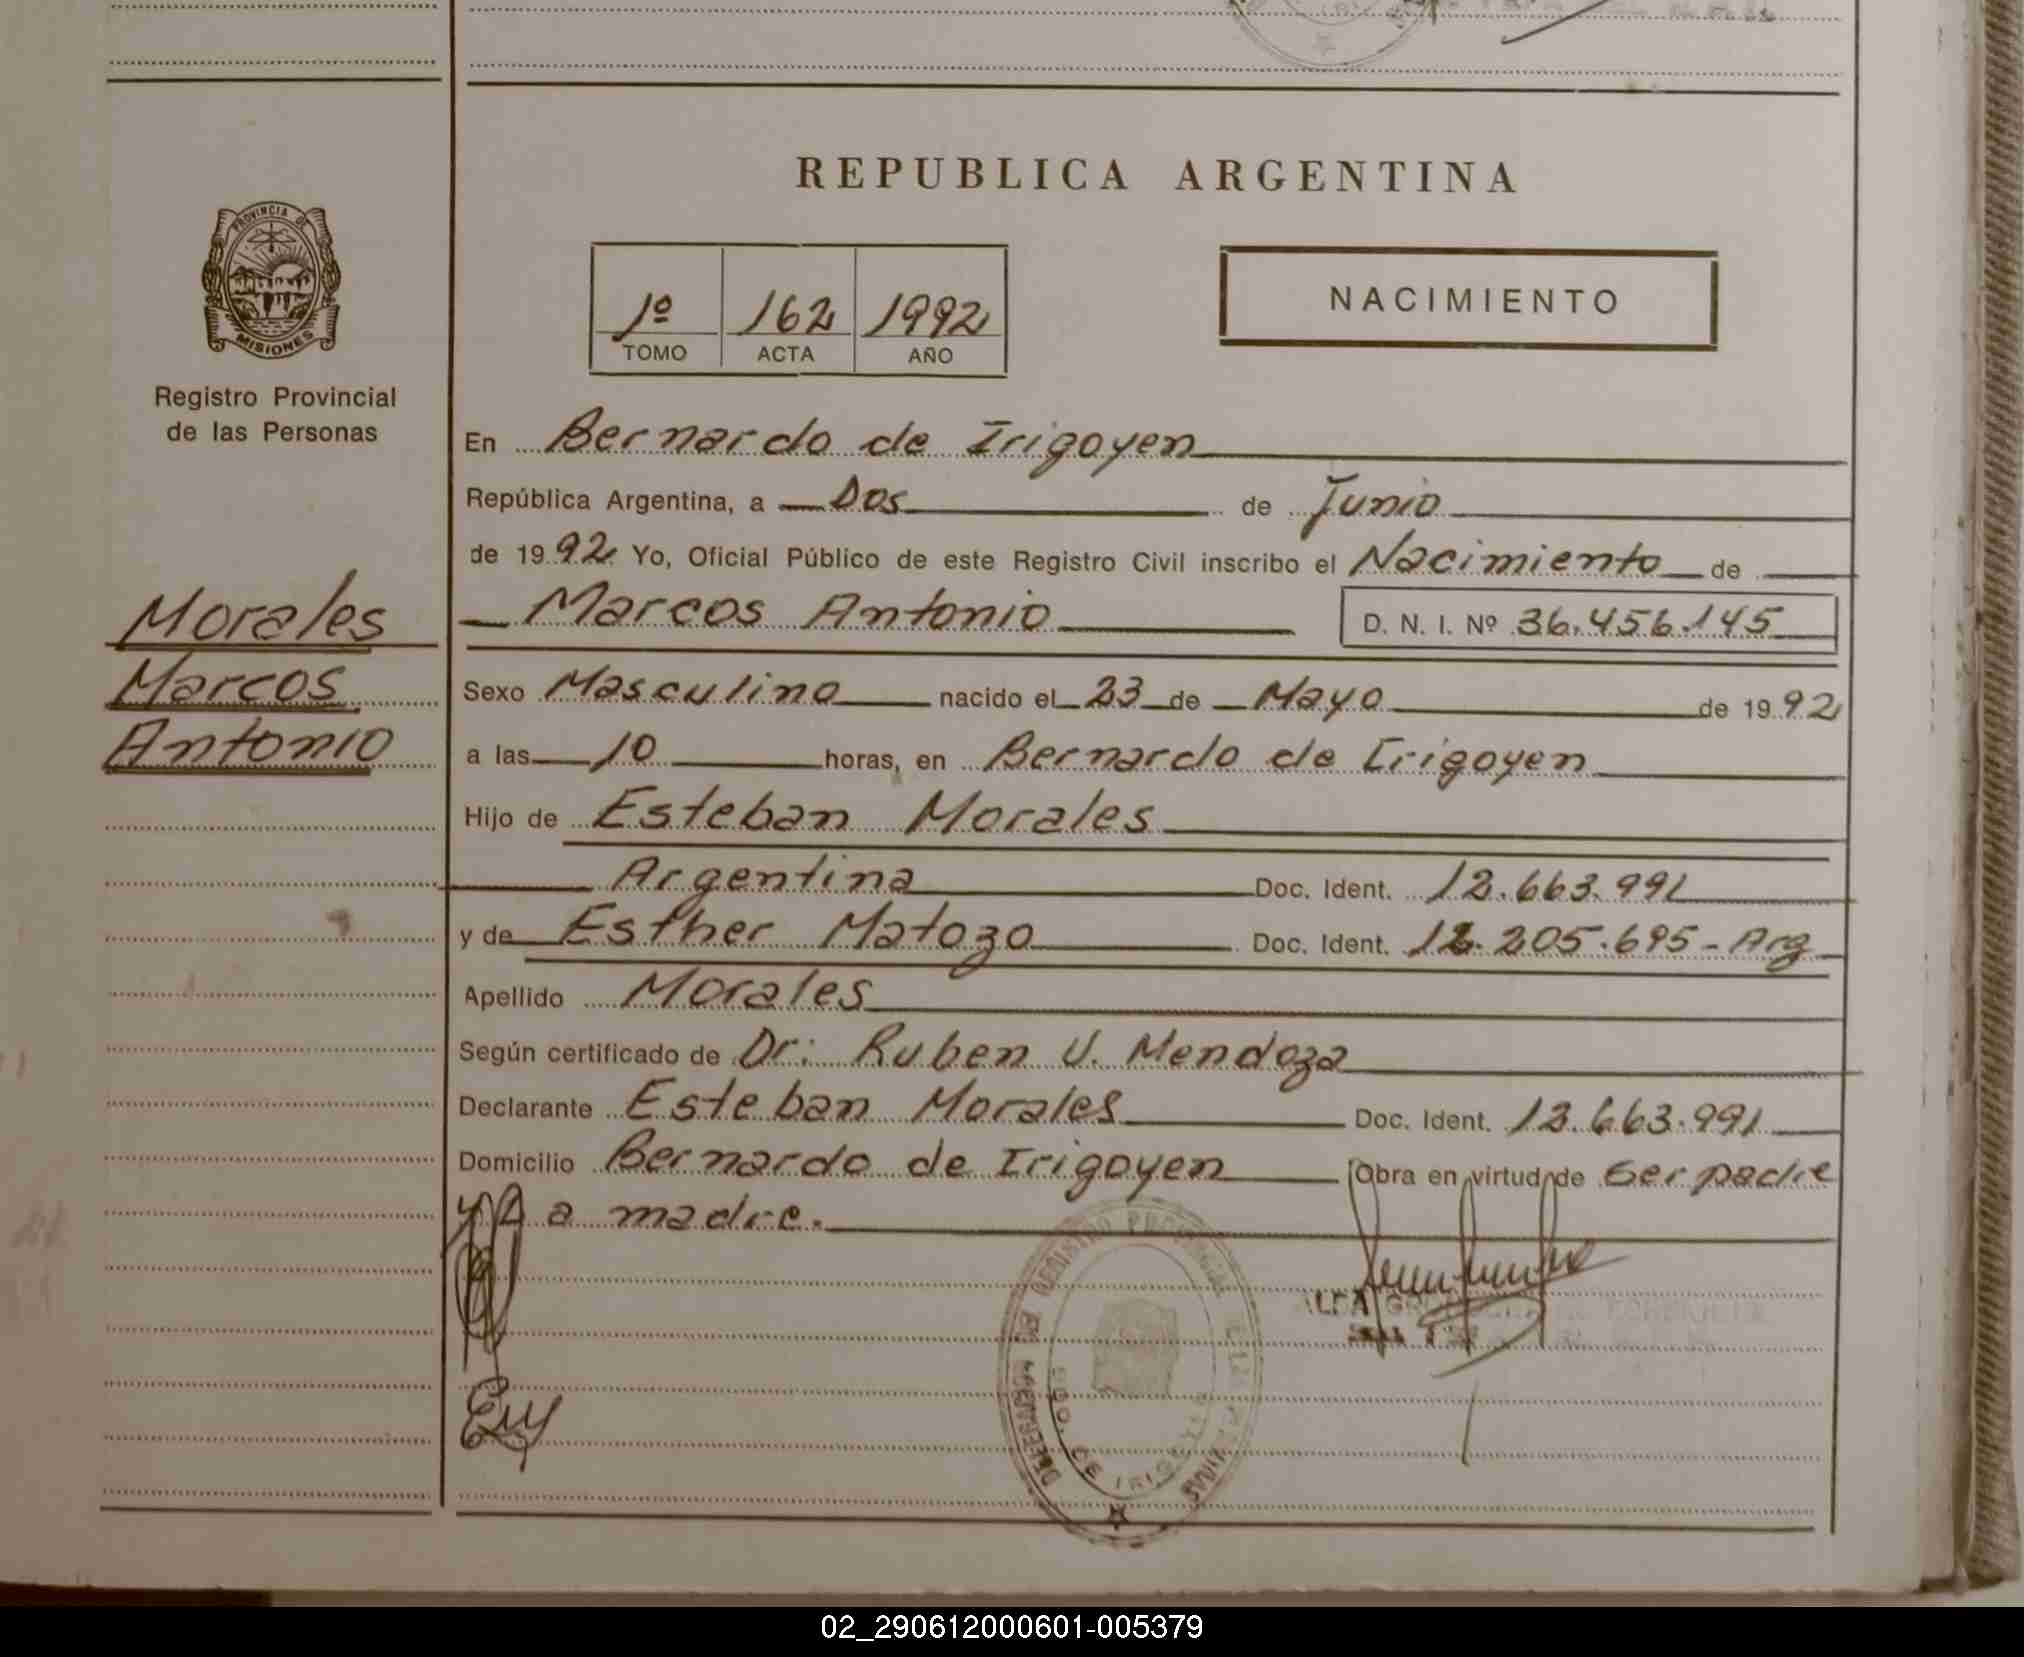 REPUBLICA ARGENTINA
PROVINCIA DE
MISIONES
Registro Provincial
de las Personas
1º 162 1992
TOMO ACTA AÑO
NACIMIENTO
En Bernardo de Irigoyen
República Argentina, a Dos de Junio
de 1992 Yo, Oficial Público de este Registro Civil inscribo el Nacimiento de
Morales
Marcos
Antonio
Marcos Antonio D. N. I. Nº 36.456.145
Sexo Masculino nacido el 23 de Mayo de 1992
a las 10 horas, en Bernardo de Irigoyen
Hijo de Esteban Morales
Argentina Doc. Ident. 12.663.991
y de Esther Matozo Doc. Ident. 205.695 - Arg
Apellido Morales
Según certificado de Dr: Ruben V. Mendoza
Declarante Esteban Morales Doc. Ident. 12.663.991
Domicilio Bernardo de Irigoyen Obra en virtud de ser padre
y a madre.
REGISTRO PROVINCIAL
BDO. DE IRIGOYEN
02_290612000601-005379